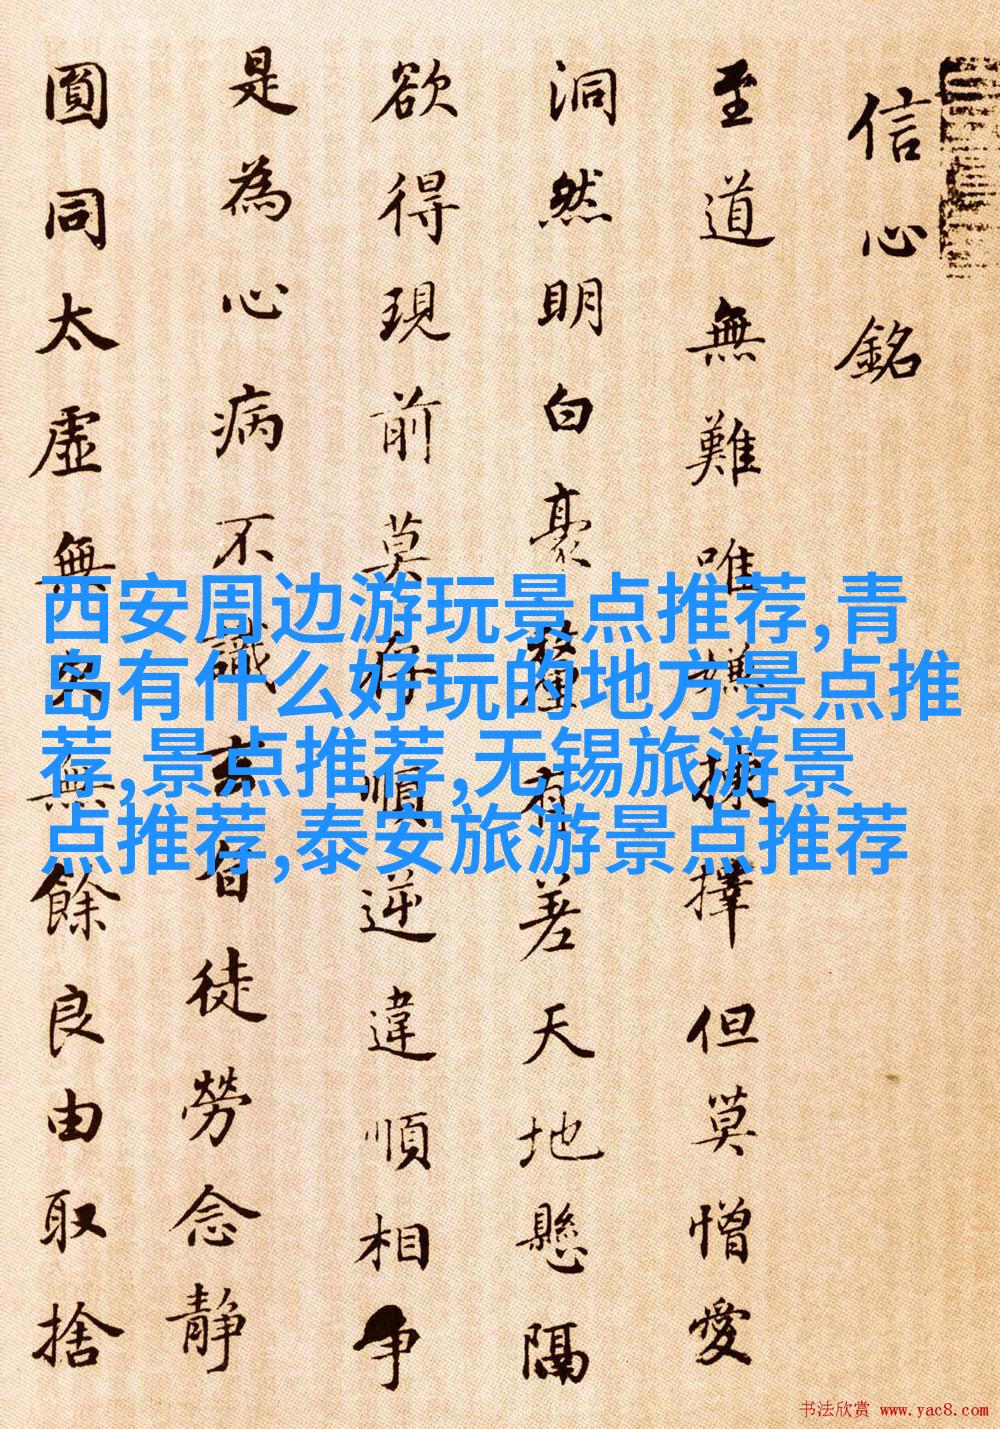 信心銘
至道無難唯嫌揀擇但莫憎愛
洞然明白豪釐有差天地懸隔
欲得現前莫存順逆違順相争
是為心病不識玄旨徒勞念静
圓同太虛無欠無餘良由取捨
西安周边游玩景点推荐,青
岛有什么好玩的地方景点推
荐,景点推荐,无锡旅游景
点推荐,泰安旅游景点推荐
书法欣赏 www.yac8.com